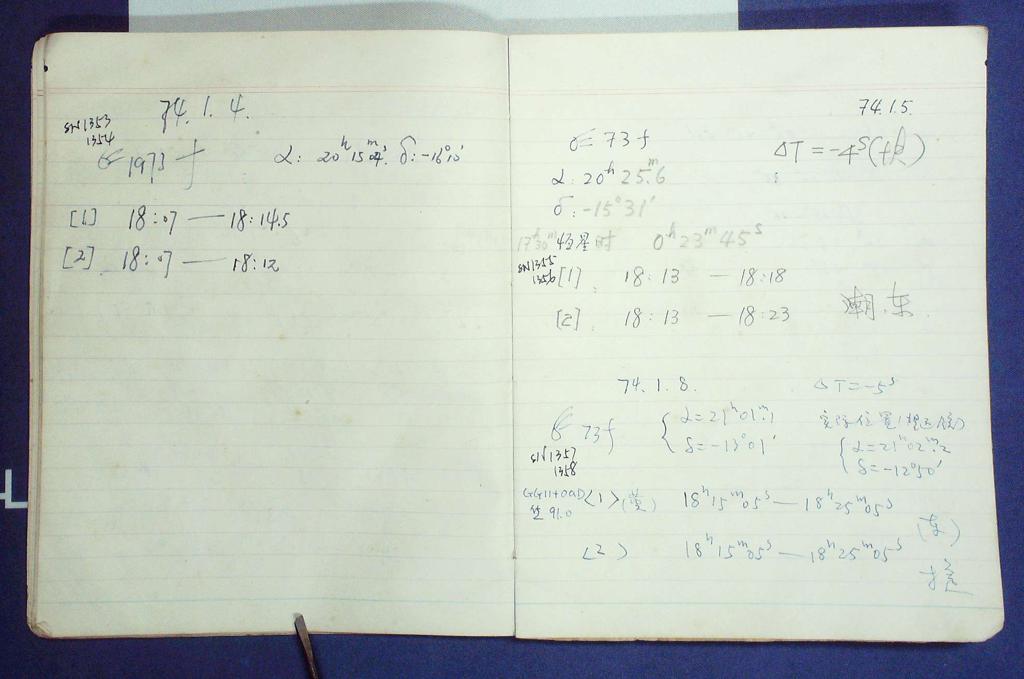 74.1.4.
SN1353
1354
1973f α: 20h15m04s. δ: -16°10'
[1] 18:07 — 18:14.5
[2] 18:07 — 18:12
74.1.5.
73f ΔT = -4s
α: 20h 25m.6
δ: -15°31'
17h30m 恒星时 0h23m45s
SN1355
1356
[1] 18:13 — 18:18
[2] 18:13 — 18:23
74.1.8. ΔT = -5s
73f α=21h01m.1
δ=-13°01'
实际位置(望远镜)
α=21h02m.2
δ=-12°50'
SN1357
1358
GG11+OaD <1> (黄) 18h15m05s — 18h25m05s
91.0
<2> 18h15m05s — 18h25m05s